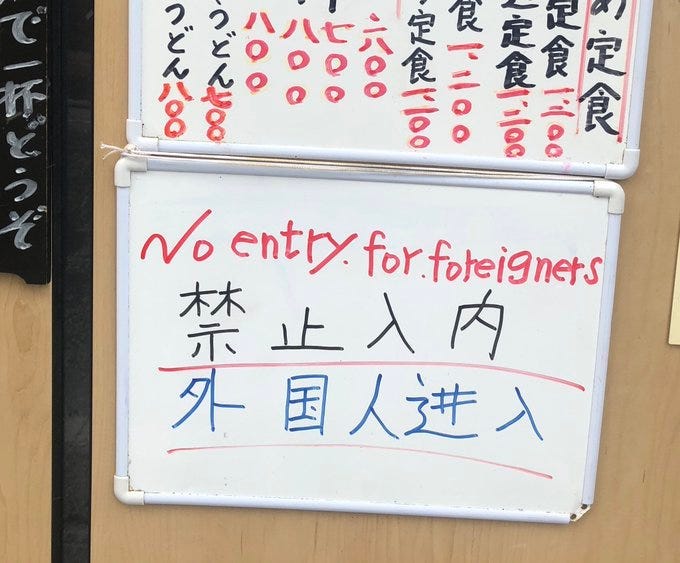 め定食
定食 一、二〇〇
定食 一、二〇〇
食 一、二〇〇
定食
六〇〇
七〇〇
八〇〇
八〇〇
うどん 七〇〇
うどん 八〇〇
で一杯どうぞ
No entry.for.foreigners
禁止入内
外国人进入